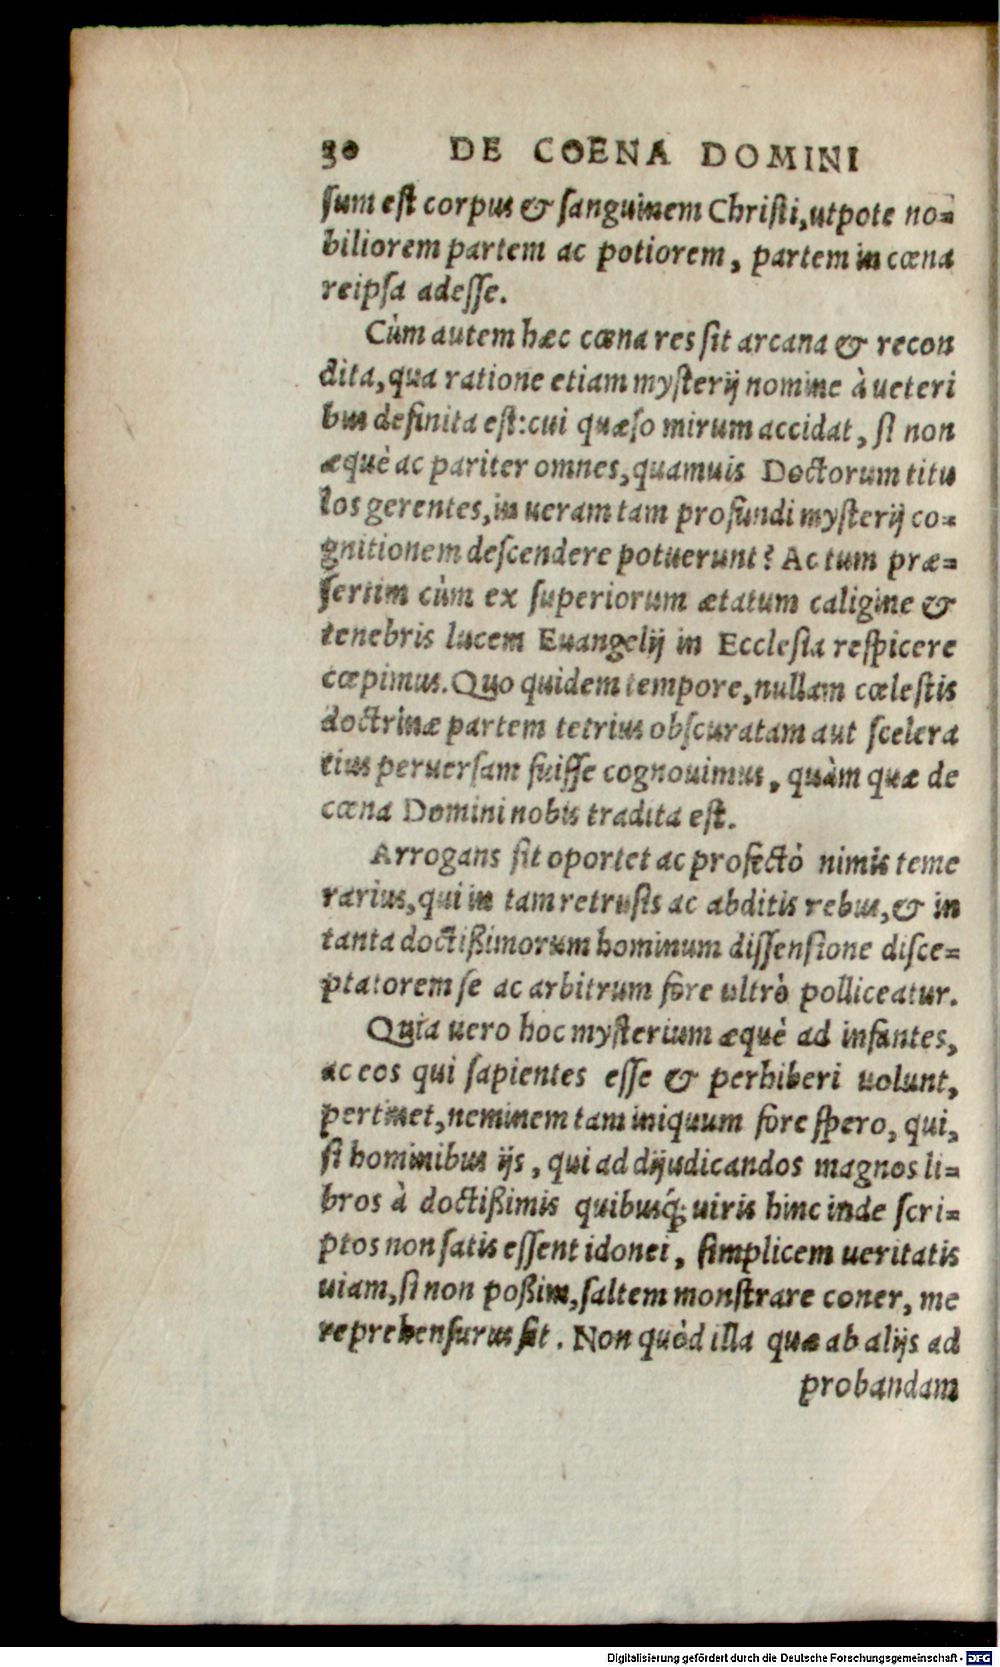 30 DE COENA DOMINI
ſum eſt corpus & ſanguinem Chriſti, utpote no=
biliorem partem ac potiorem, partem in cœna
reipſa adeſſe.
Cùm autem hæc cœna res ſit arcana & recon
dita, qua ratione etiam myſterij nomine à ueteri
bus definita eſt: cui quæſo mirum accidat, ſi non
æquè ac pariter omnes, quamuis Doctorum titu
los gerentes, in ueram tam profundi myſterij co=
gnitionem deſcendere potuerunt? Ac tum præ=
ſertim cùm ex ſuperiorum ætatum caligine &
tenebris lucem Euangelij in Eccleſia reſpicere
cœpimus. Quo quidem tempore, nullam cœleſtis
doctrinæ partem tetrius obſcuratam aut ſcelera
tius peruerſam fuiſſe cognouimus, quàm quæ de
cœna Domini nobis tradita eſt.
Arrogans ſit oportet ac profectò nimis teme
rarius, qui in tam retruſis ac abditis rebus, & in
tanta doctißimorum hominum diſſenſione diſce=
ptatorem ſe ac arbitrum fore ultrò polliceatur.
Quia uero hoc myſterium æquè ad infantes,
ac eos qui ſapientes eſſe & perhiberi uolunt,
pertinet, neminem tam iniquum fore ſpero, qui,
ſi hominibus ijs, qui ad dijudicandos magnos li=
bros à doctißimis quibusq́; uiris hinc inde ſcri=
ptos non ſatis eſſent idonei, ſimplicem ueritatis
uiam, ſi non poßim, ſaltem monſtrare coner, me
reprehenſurus ſit. Non quòd illa quæ ab alijs ad
probandam
Digitalisierung gefördert durch die Deutsche Forschungsgemeinschaft - DFG